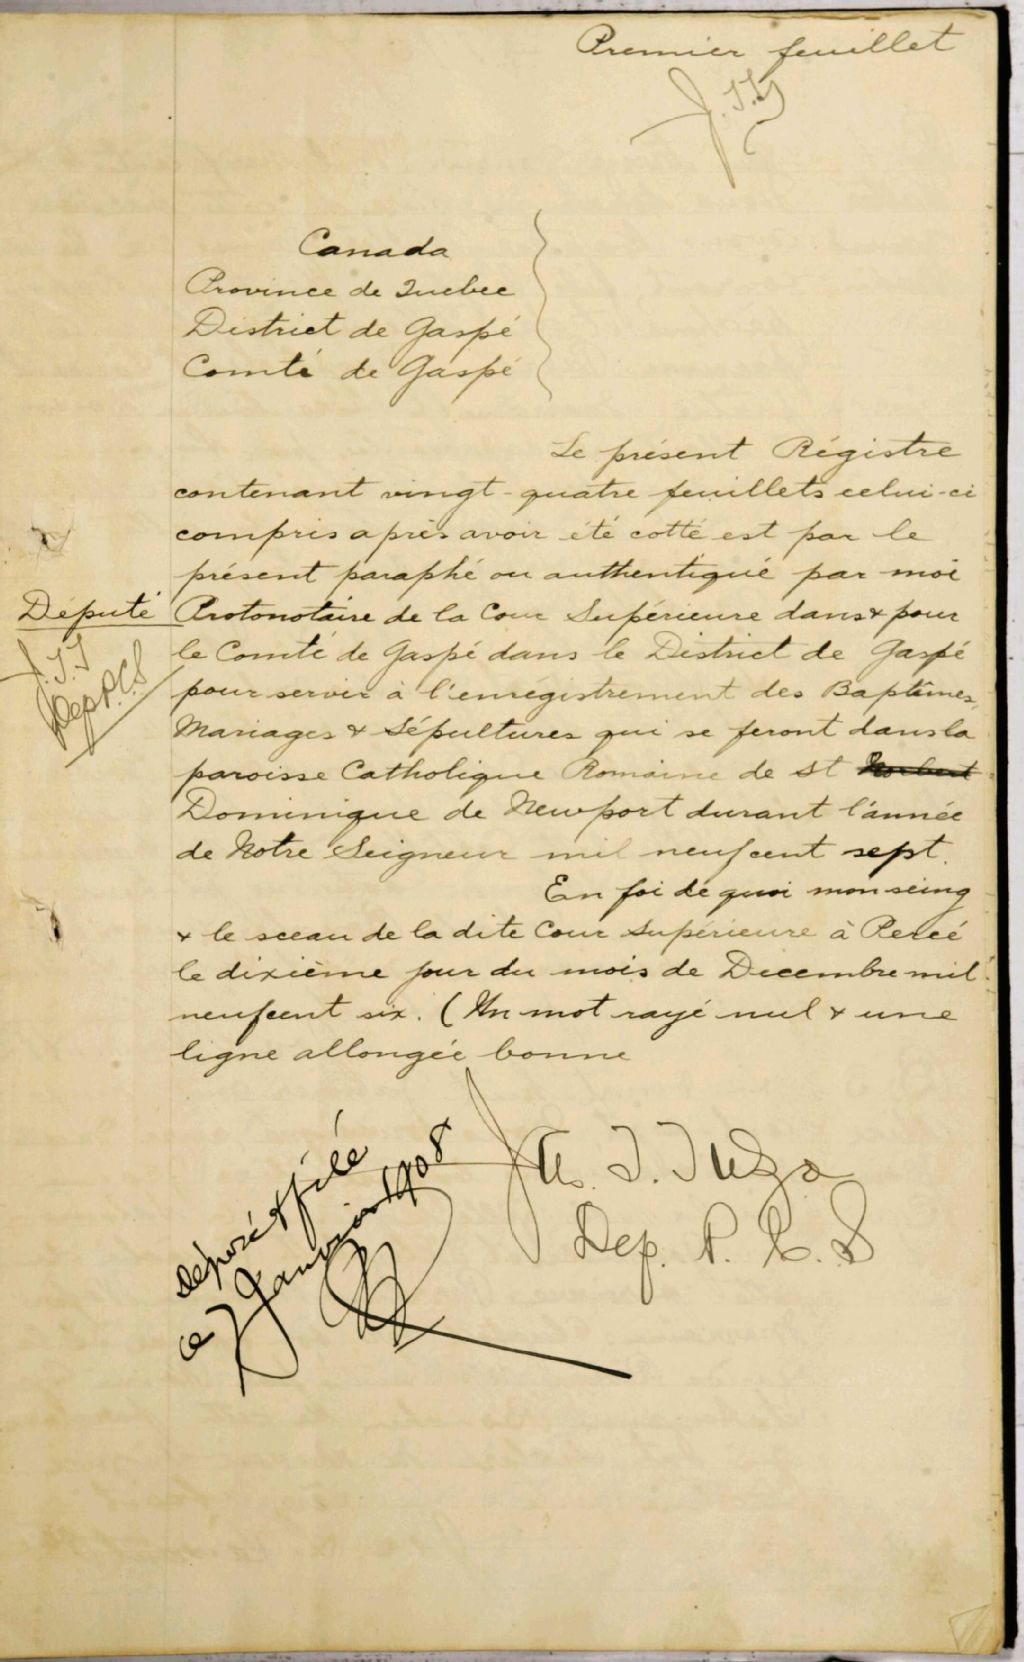 Premier feuillet
J.T.T
Canada
Province de Quebec
District de Gaspé
Comté de Gaspé
Le présent Régistre
contenant vingt-quatre feuillets celui-ci
compris après avoir été cotté est par le
présent paraphé ou authentiqué par moi
Député Protonotaire de la Cour Supérieure dans & pour
J.T.T
Dep P.C.S
le Comté de Gaspé dans le District de Gaspé
pour servir à l'enrégistrement des Baptêmes,
Mariages & Sépultures qui se feront dans la
paroisse Catholique Romaine de St Norbert
Dominique de Newport durant l'année
de Notre Seigneur mil neufcent sept.
En foi de quoi mon seing
& le sceau de la dite Cour Supérieure à Percé
le dixième jour du mois de Decembre mil
neufcent six. (Un mot rayé nul & une
ligne allongée bonne
Jas. T. Tuzo
Dep. P. C. S
Déposé & filé
ce 7 Janvier 1908